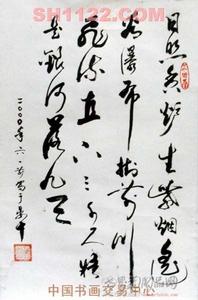 SH1122.COM
日照香炉生紫烟遥
看瀑布挂前川
飞流直下三千尺疑
是银河落九天
二〇〇〇年六·一
中国书画交易中心